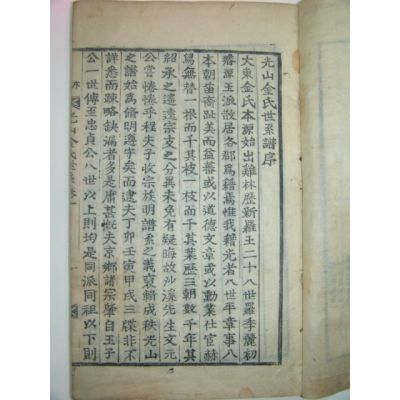 光山金氏世系譜序
大東金氏本源始出雞林歷新羅王二十八世羅季麗初
璿源玉派散居各郡爲籍焉惟我籍光者八世平章事八
本朝苗裔趾美而益蕃或以道德文章或以勳業仕宦赫
舄無替一根而千其枝一枝而千其葉歷三朝數千年其
紹承之遠遠宗支之分異未免有疑晦故沙溪先生文元
公嘗惓惓乎程夫子收宗族明譜系之義裒輯成秩光山
之譜始爲脩明遵守矣而逮夫丁卯壬寅甲戌三牒非不
詳悉而疎略缺漏者多是庸甚慨夫京鄕諸宗肇自王子
公一世傳至忠貞公八世以上則均是同派同祖以下則
序
光山金氏世系 卷一
一